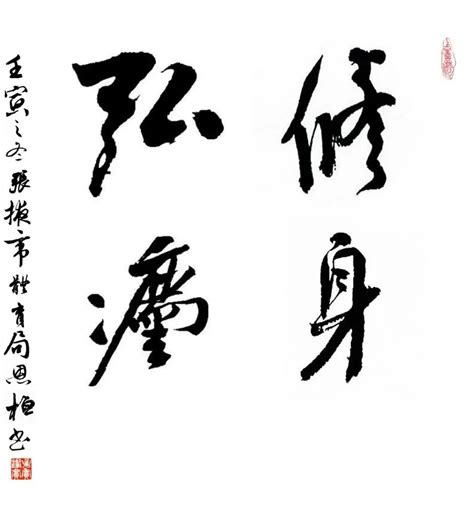 修身
弘
壬寅之冬張掖市體育局恩书